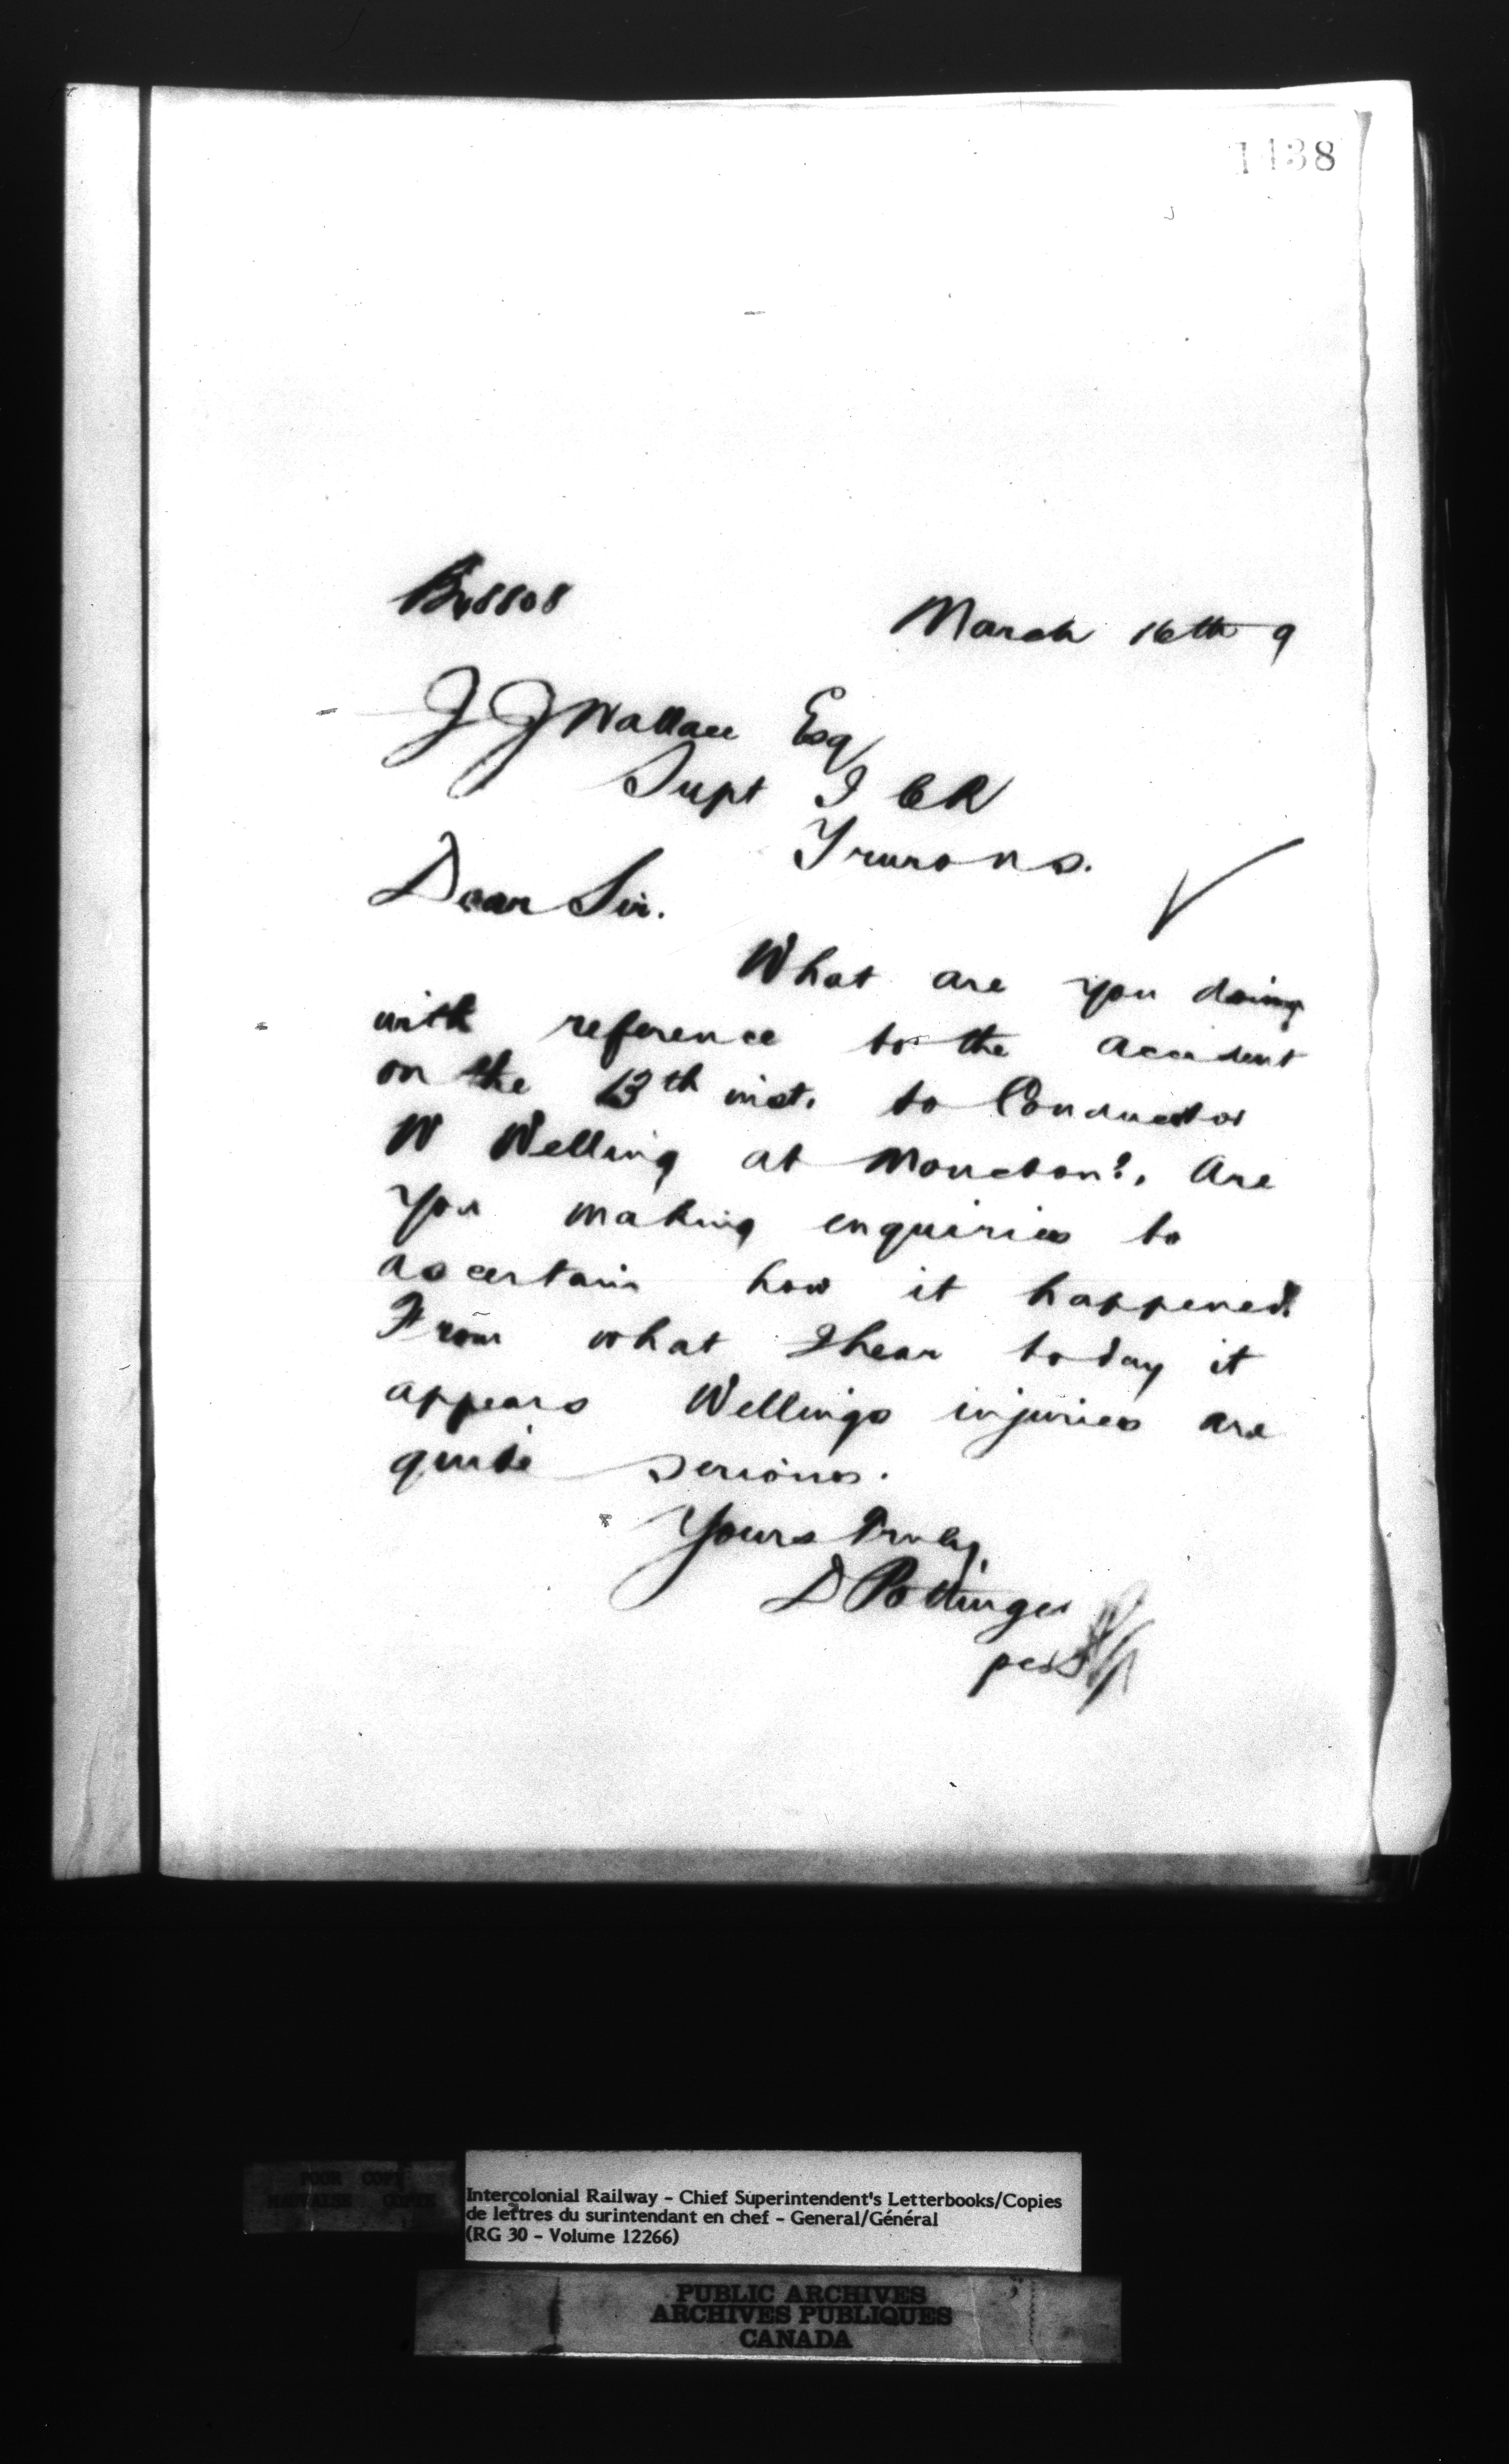 1438
Br8808
March 16th 9
J J Wallace Esq
Supt I C R
Truro N S.
Dear Sir.
What are you doing
with reference to the accident
on the 13th inst. to Conductor
W Welling at Moncton?. Are
you making enquiries to
ascertain how it happened?
From what I hear today it
appears Wellings injuries are
quite serious.
Yours Truly,
D Pottinger
per
POOR COPY
MAUVAISE COPIE
Intercolonial Railway - Chief Superintendent's Letterbooks/Copies
de lettres du surintendant en chef - General/Général
(RG 30 - Volume 12266)
PUBLIC ARCHIVES
ARCHIVES PUBLIQUES
CANADA